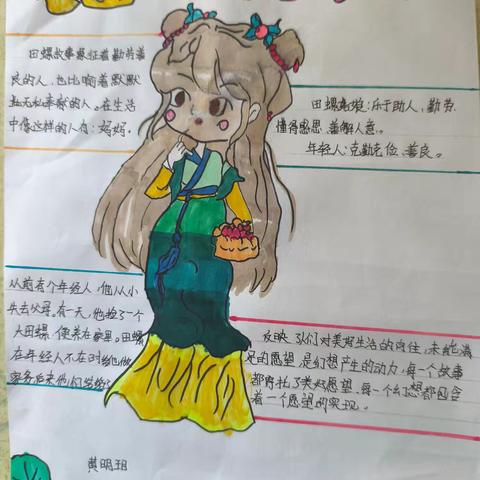 田螺故事象征着勤劳善
良的人，也比喻着默默
无私奉献的人。在生活
中像这样的人有：妈妈。
田螺姑娘：乐于助人，勤劳、
懂得感恩、善解人意。
年轻人：克勤克俭、善良。
从前有个年轻人，他从小
失去父母。有一天，他捡了一个
大田螺，便养在家里。田螺
在年轻人不在时给他做
家务后来他们
反映了人们对美好生活的向往，未能满
足的愿望，是幻想产生的动力，每一个故事
都寄托了美好愿望，每一个幻想都包含
着一个愿望的实现。
黄明玥